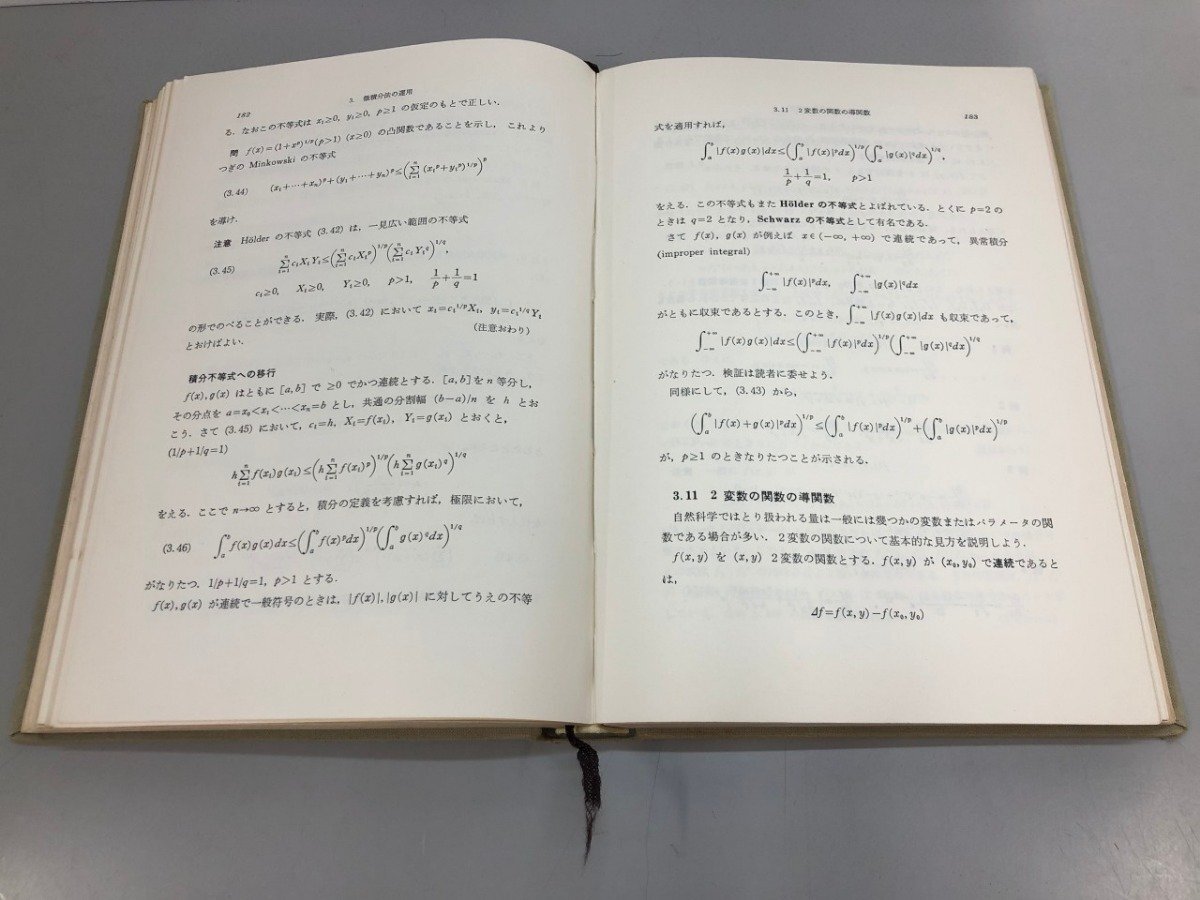 182
3. 微積分法の運用
る．なおこの不等式は x_i≥0, y_i≥0, p≥1 の仮定のもとで正しい．
問 f(x)=(1+x^p)^{1/p}(p>1) (x≥0) の凸関数であることを示し，これより
つぎの Minkowski の不等式
(3.44) (x_1+⋯+x_n)^p+(y_1+⋯+y_n)^p≤(∑_{i=1}^n (x_i^p+y_i^p)^{1/p})^p
を導け．
注意 Hölder の不等式 (3.42) は，一見広い範囲の不等式
(3.45) ∑_{i=1}^n c_iX_iY_i≤(∑_{i=1}^n c_iX_i^p)^{1/p}(∑_{i=1}^n c_iY_i^q)^{1/q},
c_i≥0, X_i≥0, Y_i≥0, p>1, 1/p+1/q=1
の形でのべることができる．実際，(3.42) において x_i=c_i^{1/p}X_i, y_i=c_i^{1/q}Y_i
とおけばよい． (注意おわり)
積分不等式への移行
f(x), g(x) はともに [a,b] で ≥0 でかつ連続とする．[a,b] を n 等分し，
その分点を a=x_0<x_1<⋯<x_n=b とし，共通の分割幅 (b−a)/n を h とお
こう．さて (3.45) において，c_i=h, X_i=f(x_i), Y_i=g(x_i) とおくと，
(1/p+1/q=1)
h∑_{i=1}^n f(x_i)g(x_i)≤(h∑_{i=1}^n f(x_i)^p)^{1/p}(h∑_{i=1}^n g(x_i)^q)^{1/q}
をえる．ここで n→∞ とすると，積分の定義を考慮すれば，極限において，
(3.46) ∫_a^b f(x)g(x)dx≤(∫_a^b f(x)^pdx)^{1/p}(∫_a^b g(x)^qdx)^{1/q}
がなりたつ．1/p+1/q=1, p>1 とする．
f(x), g(x) が連続で一般符号のときは，|f(x)|, |g(x)| に対してうえの不等
3.11 2変数の関数の導関数
183
式を適用すれば，
∫_a^b |f(x)g(x)|dx≤(∫_a^b |f(x)|^pdx)^{1/p}(∫_a^b |g(x)|^qdx)^{1/q},
1/p+1/q=1, p>1
をえる．この不等式もまた Hölder の不等式とよばれている．とくに p=2 の
ときは q=2 となり，Schwarz の不等式として有名である．
さて f(x), g(x) が例えば x∈(−∞, +∞) で連続であって，異常積分
(improper integral)
∫_{−∞}^{+∞} |f(x)|^pdx, ∫_{−∞}^{+∞} |g(x)|^qdx
がともに収束であるとする．このとき，∫_{−∞}^{+∞} |f(x)g(x)|dx も収束であって，
∫_{−∞}^{+∞} |f(x)g(x)|dx≤(∫_{−∞}^{+∞} |f(x)|^pdx)^{1/p}(∫_{−∞}^{+∞} |g(x)|^qdx)^{1/q}
がなりたつ．検証は読者に委せよう．
同様にして，(3.43) から，
(∫_a^b |f(x)+g(x)|^pdx)^{1/p}≤(∫_a^b |f(x)|^pdx)^{1/p}+(∫_a^b |g(x)|^pdx)^{1/p}
が，p≥1 のときなりたつことが示される．
3.11 2 変数の関数の導関数
自然科学ではとり扱われる量は一般には幾つかの変数またはパラメータの関
数である場合が多い．2変数の関数について基本的な見方を説明しよう．
f(x,y) を (x,y) 2変数の関数とする．f(x,y) が (x_0,y_0) で連続であると
は，
Δf=f(x,y)−f(x_0,y_0)